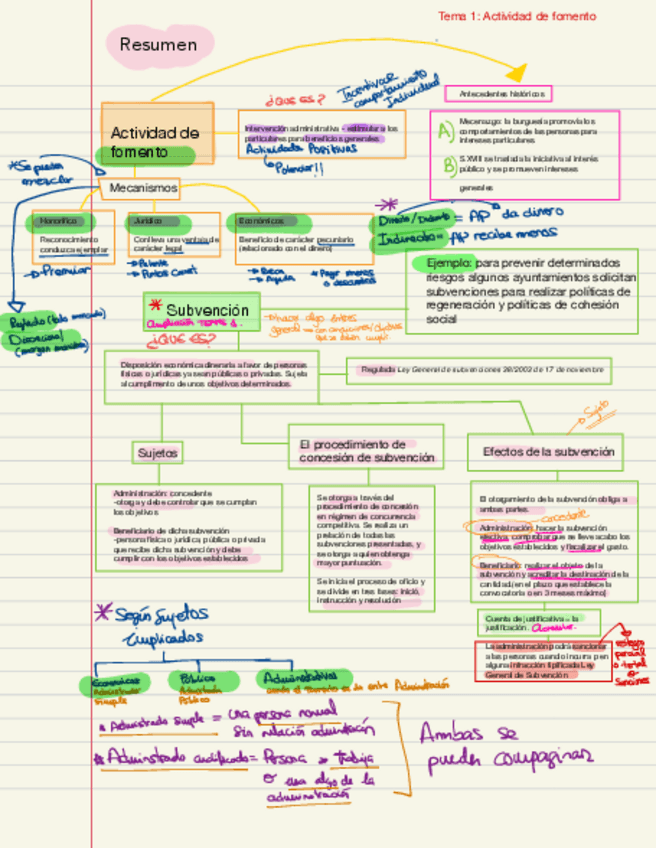 Tema 1: Actividad de fomento
Resumen
Antecedentes históricos
¿QUE ES?
Incentivar
comportamiento
Individual
Actividad de
fomento
Intervención administrativa - estimular a los
particulares para beneficios generales
Actividades Positivas
Potenciar!!
A)
Mecenazgo: la burguesía promovía los
comportamientos de las personas para
intereses particulares
B)
S.XVIII se traslada la iniciativa al interés
público y se promueven intereses
generales
*Se pueden
mezclar
Mecanismos
Honorífico
Reconocimiento
conducta ejemplar
→Premiar
Jurídico
Conlleva una ventaja de
carácter legal
→Patente
Económicos
Beneficio de carácter pecuniario
(relacionado con el dinero)
→Beca
→Ayuda
→Pagar menos
*
Directo = AP da dinero
Indirecto = AP recibe menos
Ejemplo: para prevenir determinados
riesgos algunos ayuntamientos solicitan
subvenciones para realizar políticas de
regeneración y políticas de cohesión
social
Discrecional
* Subvención
Ampliación tema 1.
¿QUE ES?
Disposición económica dineraria a favor de personas
físicas o jurídicas ya sean públicas o privadas. Sujeta
al cumplimento de unos objetivos determinados.
Regulada Ley General de subvenciones 38/2003 de 17 de noviembre
Sujeto
Sujetos
El procedimiento de
concesión de subvención
Efectos de la subvención
Administración: concedente
-otorga y debe controlar que se cumplan
los objetivos
Beneficiario de dicha subvención
-persona física o jurídica, pública o privada
que recibe dicha subvención y debe
cumplir con los objetivos establecidos
Se otorga a través del
procedimiento de concesión
en régimen de concurrencia
competitiva. Se realiza un
prelación de todas las
subvenciones presentadas, y
se otorga a quien obtenga
mayor puntuación.
Se inicia el proceso de oficio y
se divide en tres fases: inició,
instrucción y resolución
El otorgamiento de la subvención obliga a
ambas partes.
concedente
Administración: hacer la subvención
efectiva, comprobar que se lleve a cabo los
objetivos establecidos y fiscalizar el gasto.
Beneficiario: realizar el objeto de la
subvención y acreditar la destinación de la
cantidad (en el plazo que establece la
convocatoria o en 3 meses máximo)
Cuenta de justificativa – la
justificación.
La administración podrá sancionar
a las personas cuando incurra pen
alguna infracción tipificada Ley
General de Subvención
reintegro
parcial
o total
o
sanciones
* Según Sujetos
implicados
Económicas
Administrado
Simple
Público
Administrado
Público
Administrativos
* Administrado simple = Una persona normal
sin relación administración
* Administrado cualificado = Persona → trabaja
o usa algo de la
administración
Ambas se
pueden compaginar